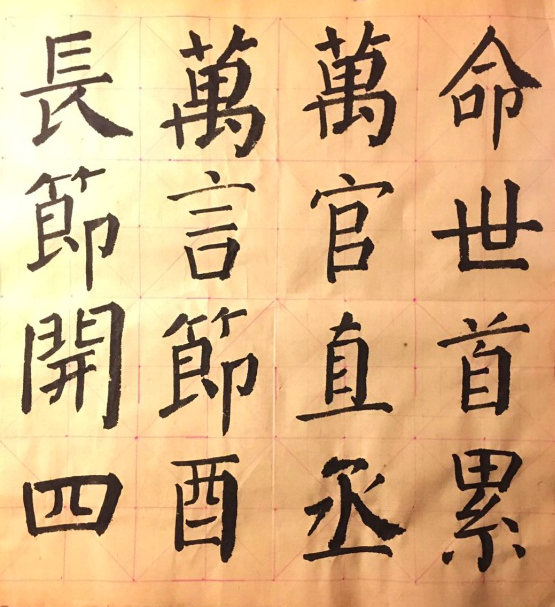 命世首累
萬官直丞
萬言節酉
長節開四